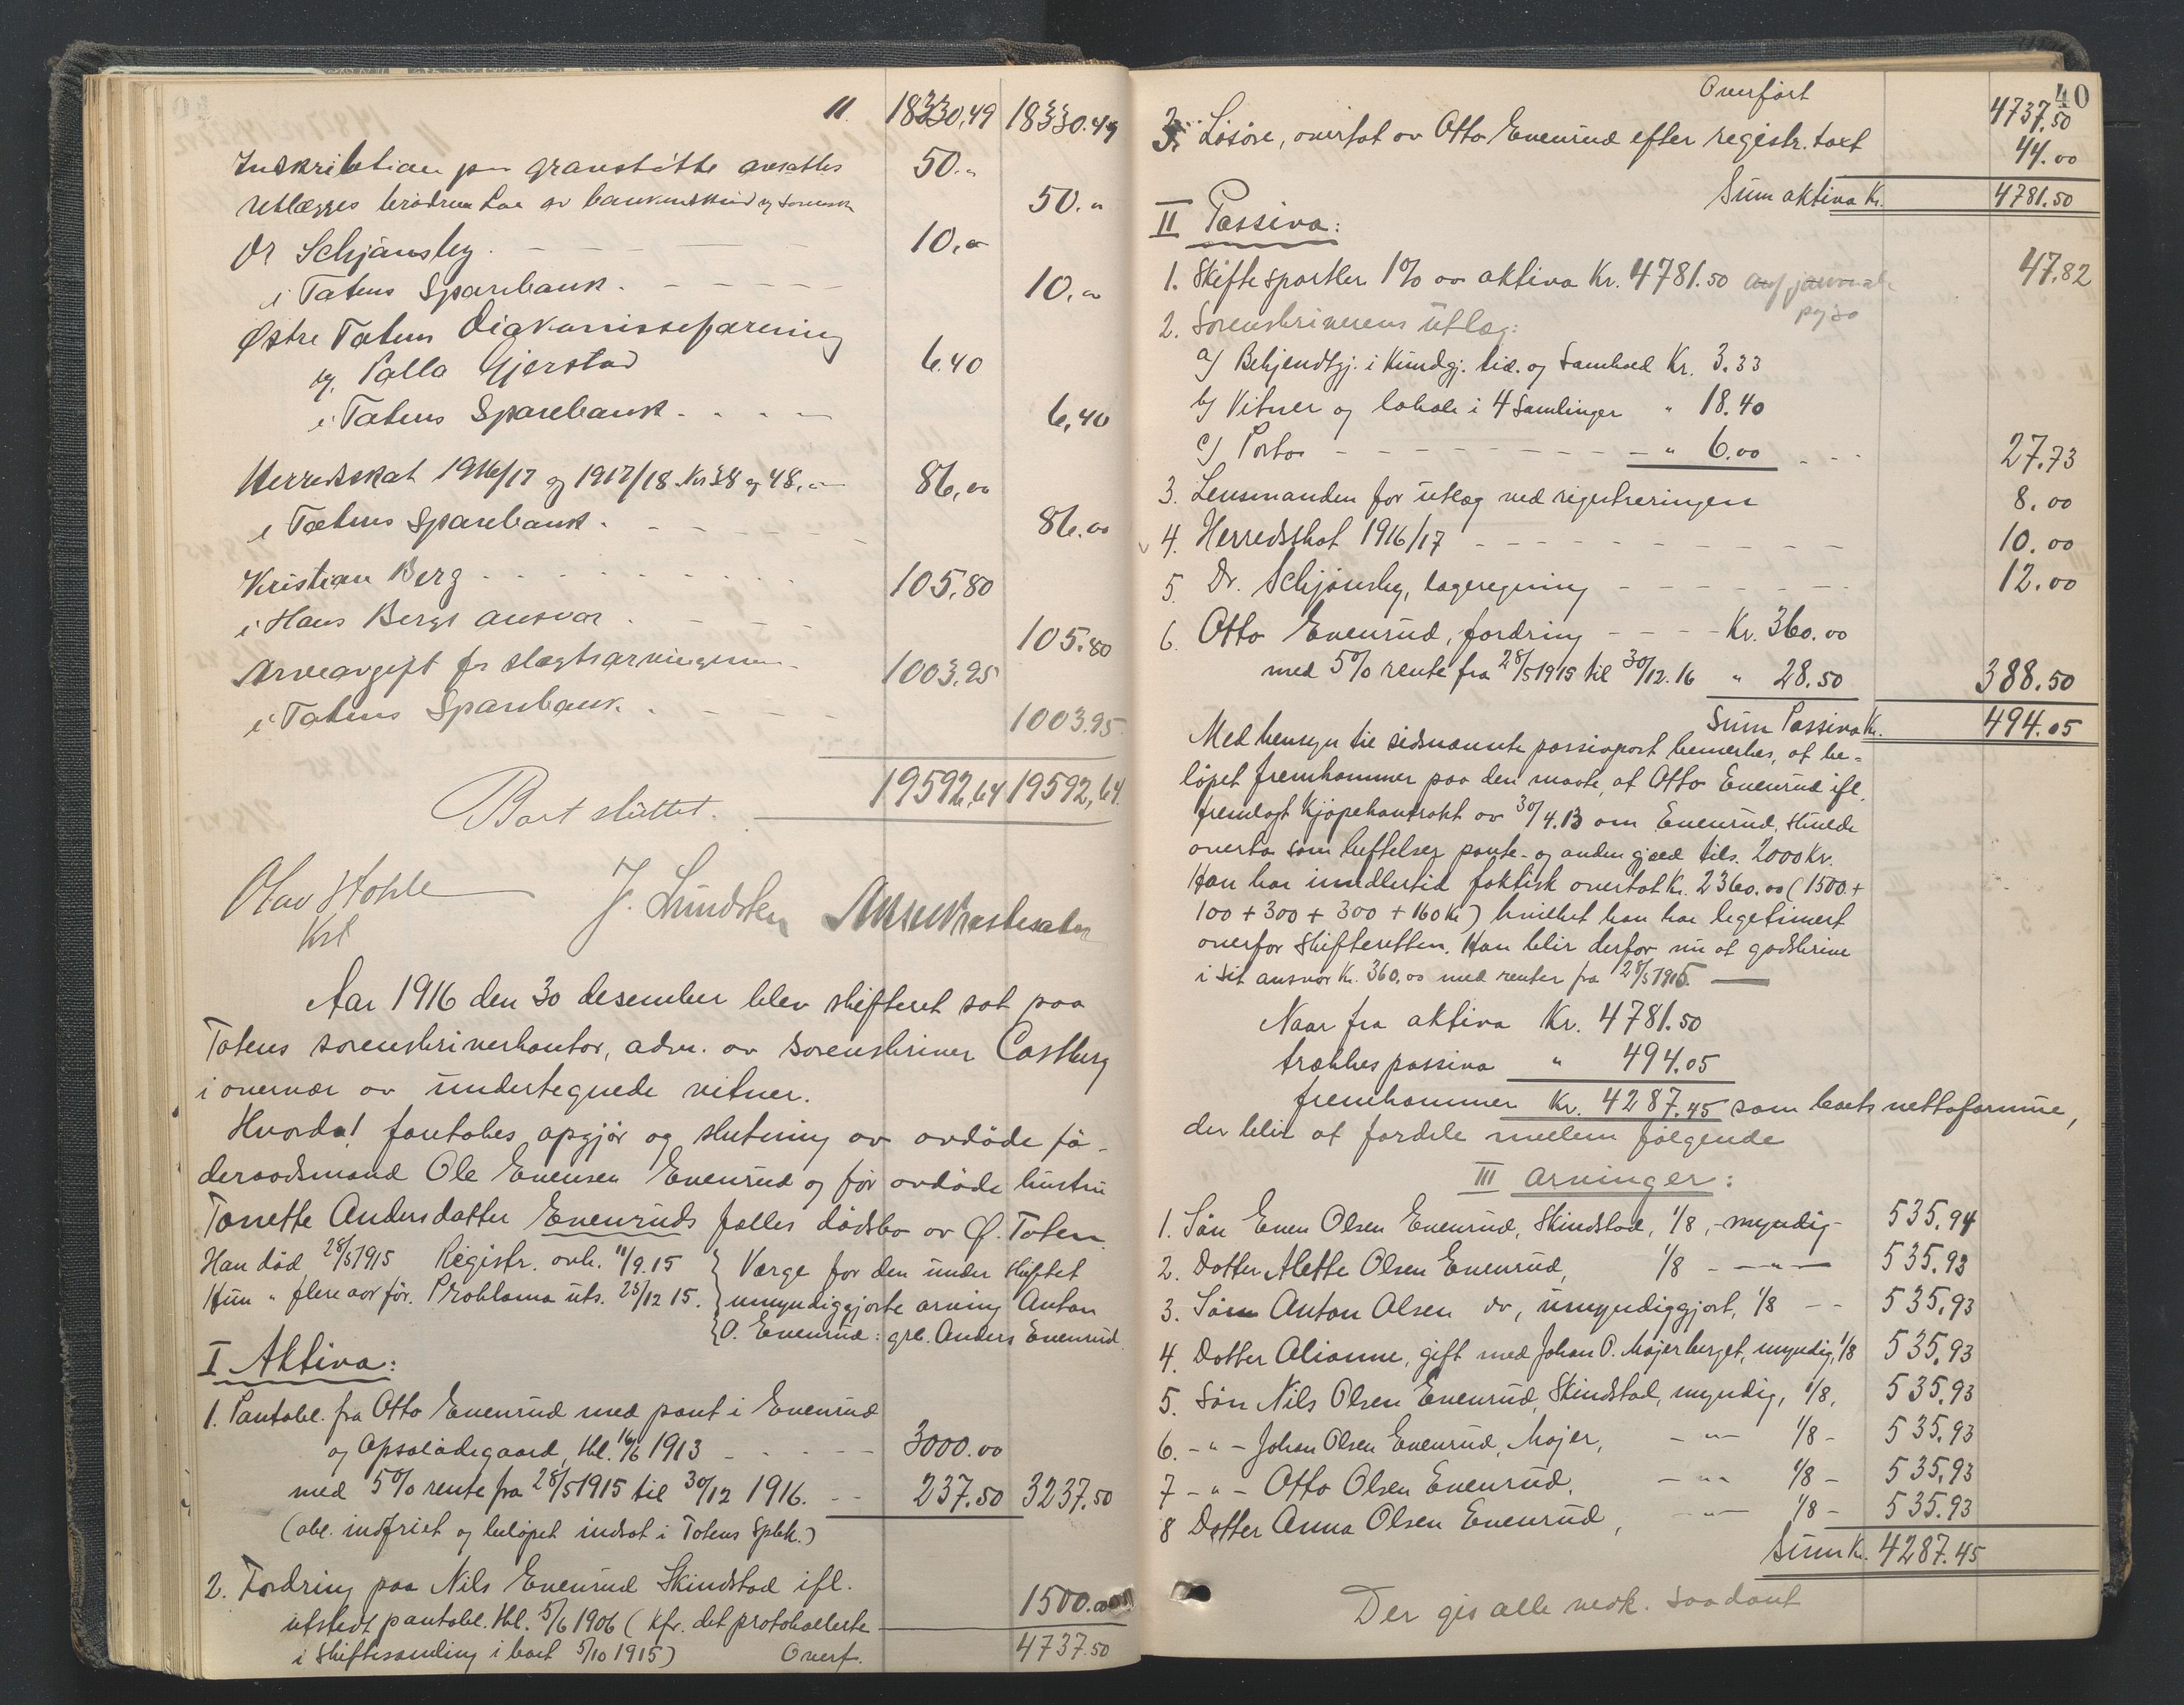 11. 18330,49 18330.49
Inskribtion paa gravstøtte ansattes 50.-
utlægges brødrene Lae
50.-
Dr Schjänsby. 10,-
i Totens Sparebank. 10.-
Østre Totens Diakonisseforening
v. Palla Gjerstad 6.40
i Totens Sparebank. 6,40
Herredsskat 1916/17 og 1917/18 Kr 38 og 48.- 86,00
i Totens Sparebank. 86.00
Kristian Berg 105,80
i Hans Bergs ansvar 105.80
Arveavgift fr slegtsarvingerne 1003,95
i Totens Sparebank. 1003.95
19592,64 19592,64
Boet sluttet.
Olav Hohle J. Lundsten
Kst
Aar 1916 den 30 desember blev skifteret sat paa
Totens sorenskriverkontor, adm. av sorenskriver Castberg
i overvær av undertegnede vitner.
Hvorda! foretokes opgjør og slutning av avdøde fö-
deraadsmand Ole Evensen Evenrud og før avdøde hustru
Tonette Andersdatter Evenruds fælles dødsbo av Ø. Toten.
Han död 28/5 1915 Registr. avh. 11/9.15 } Værge for den under skiftet
Hun " flere aar før. Proklama uts. 23/12 15. } umyndiggjorte arving Anton
} O. Evenrud: grb. Anders Evenrud.
I Aktiva:
1. Pantobl. fra Otto Evenrud med pant i Evenrud
og Opsalødegaard, tbl. 16/6 1913 3000.00
med 5% rente fra 28/5 1915 til 30/12 1916. 237.50 3237.50
(obl. indfriet og beløpet indsat i Totens Spbk.)
2. Fordring paa Nils Evenrud Skindstad ifl. 1500.00
utstedt pantobl. tbl. 5/6 1906 (kfr. det protokollerte
i skiftesamling i boet 5/10 1915) Overf. 4737.50
40
Overført 4737.50
3. Løsøre, overtat av Otto Evenrud efter registr. takst 44.00
Sum aktiva Kr. 4781.50
II Passiva:
1. Skiftesportler 1% av aktiva Kr. 4781.50 47.82
2. Sorenskriverens utlæg:
a) Bekjendtgj. i Kundgj. tid. og Samhold Kr. 3.33
b) Vitner og lokale i 4 Samlinger " 18.40
c) Porto " 6.00 27.73
3. Lensmanden for utlæg ved registreringen 8.00
4. Herredsskat 1916/17 10.00
5. Dr. Schjönsby, lægeregning 12.00
6. Otto Evenrud, fordring Kr. 360.00
med 5% rente fra 28/5 1915 til 30/12.16 " 28.50 388.50
Sum Passiva Kr. 494.05
Med hensyn til sidsnævnte passivpost bemerkes, at be-
løpet fremkommer paa den maate, at Otto Evenrud ifl.
fremlagt kjøpekontrakt av 30/4.13 om Evenrud, skulde
overta som heftelser pante- og anden gjæld tils. 2000 Kr.
Han har imidlertid faktisk overtat Kr. 2360.00 (1500 +
100 + 300 + 300 + 160 Kr) hvilket han har legetimert
overfor skifteretten. Han blir derfor nu at godskrive
i sit ansvar Kr. 360,00 med renter fra 28/5 1915.
Naar fra aktiva Kr. 4781.50
trækkes passiva " 494.05
fremkommer Kr. 4287.45 som boets nettoformue,
der blir at fordele mellem følgende
III Arvinger:
1. Sön Even Olsen Evenrud, Skindstad, 1/8, - myndig - 535.94
2. Datter Alette Olsen Evenrud, 1/8 - " - 535.93
3. Søn Anton Olsen do, umyndiggjort, 1/8 - - 535,93
4. Datter Olianne, gift med Johan P. Majerberget, myndig, 1/8 535,93
5. Sön Nils Olsen Evenrud, Skindstad, myndig, 1/8, 535,93
6. - " - Johan Olsen Evenrud, Majer, - " - 1/8 - 535,93
7 - " - Otto Olsen Evenrud, - " - 1/8 - 535,93
8 Datter Anna Olsen Evenrud, - " - 1/8 - 535.93
Sum Kr. 4287.45
Der gis alle vedk. saadant